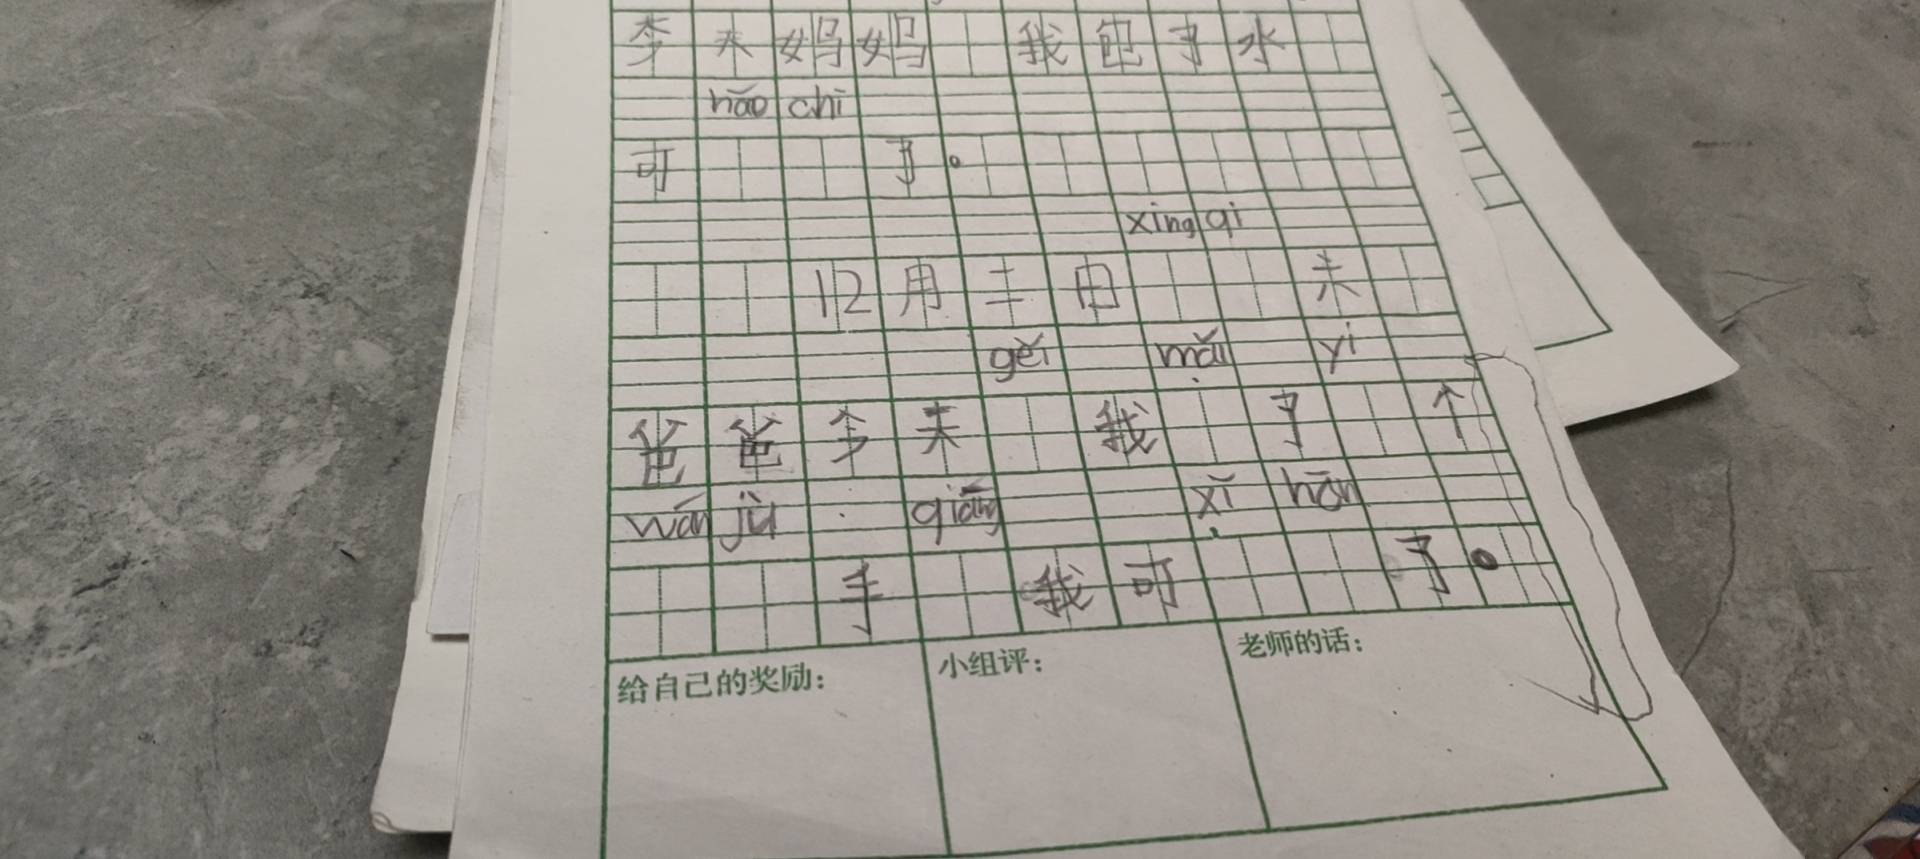 李天妈妈 我包了水
hǎo chī
可 了。
xing qi
12月二日 天
gěi mǎi yi
爸爸今天 我 了 个
wán jù qiāng
xǐ hān
手 我可 了。
给自己的奖励：
小组评：
老师的话：